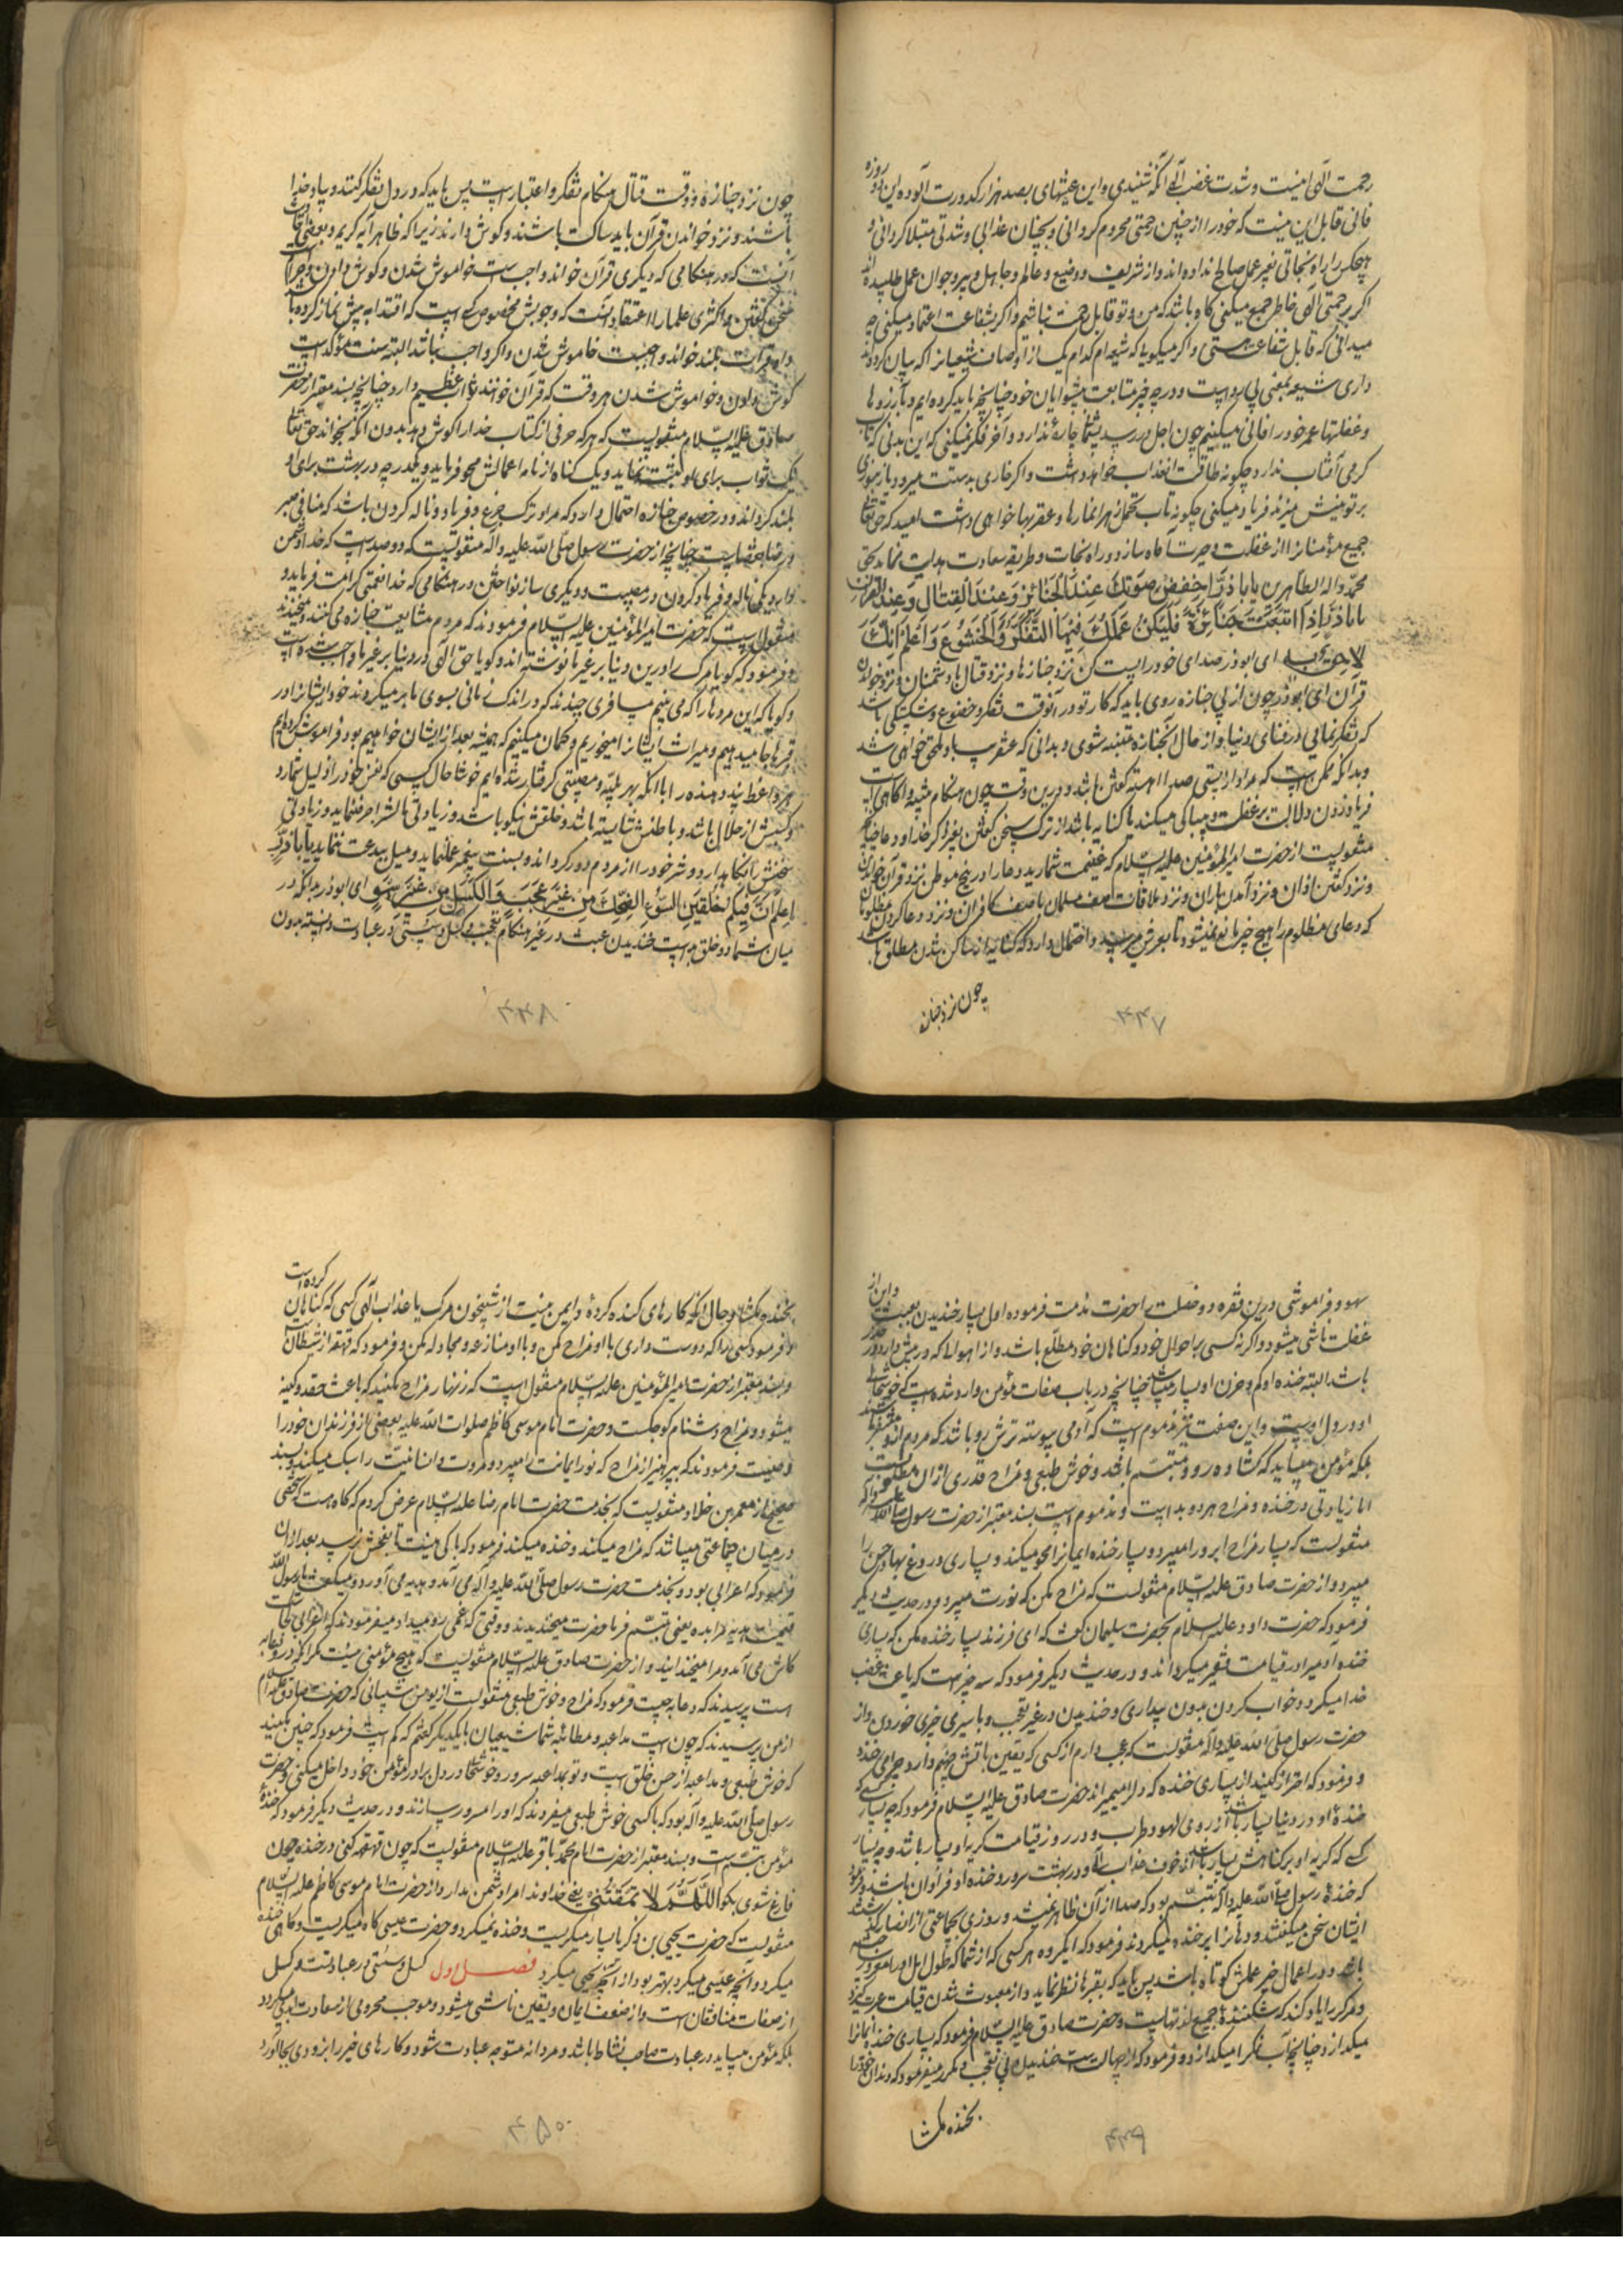 رحمت الهی امنیت و شدت غضب الهی آنکه شنیدی و این عیشهای بصد هزار کدورت آلوده این دو روزه
فانی قابل این نیست که خود را از چنین رحمتی محروم گردانی و بچنان عذابی و شدتی مبتلا گردانی و
هیچکس را راه نجاتی بغیر عمل صالح نداده‌اند و از شریف و وضیع و عالم و جاهل و پیر و جوان عمل طلبیده‌اند
اگر برحمتی الهی خاطر جمع میکنی گاه باشد که من و تو قابل رحمت نباشیم و اگر بشفاعت اعتماد میکنی چه
میدانی که قابل شفاعت هستی و اگر میگویی که شیعه‌ام کدام یک از اوصاف شیعیان را که بیان کردند
داری شیعه بمعنی پی رو است و در چه چیز متابعت پیشوایان خود چنانچه باید کرده‌ایم و بآرزوها
و غفلتها عمر خود را فانی میکنیم چون اجل در رسید پشیمانی چاره ندارد و آخر فکر نمیکنی که این بدنی که تاب
گرمی آفتاب ندارد چگونه طاقت آن عذاب خواهد داشت و اگر خاری بدستت میرود یا زنبوری
بر تو نیش میزند فریاد میکنی چگونه تاب تحمل زهر مارها و عقربها خواهی داشت امید که حق تعالی
جمیع مؤمنان را از غفلت و حیرت آگاه سازد و راه نجات و طریقه سعادت هدایت نماید بحق
محمد و اله الطاهرین یا ابا ذر اخفض صوتک عند الجنائز و عند القتال و عند القران
یا ابا ذر اذا اتبعت جنازة فلیکن عملک فیها التفکر و الخشوع و اعلم انک
لاحق به ای ابوذر صدای خود را پست کن نزد جنازها و نزد قتال با دشمنان و نزد خواندن
قرآن ای ابوذر چون از پی جنازه روی باید که کار تو در آنوقت تفکر و خضوع و شکستگی باشد
که تفکر نمایی در فنای دنیا و از حال آن جنازه متنبه شوی و بدانی که عنقریب باو ملحق خواهی شد
و بدانکه ممکن است که مراد از پستی صدا آهسته گفتن باشد و درین وقت چون هنگام تنبیه و آگاهی است
فریاد زدن دلالت بر غفلت و بیباکی میکند یا کنایه باشد از ترک سخن گفتن بغیر از ذکر خدا و دعا چنانچه
منقولست از حضرت امیر المؤمنین علیه السلام که غنیمت شمارید دعا را در پنج موطن نزد قرآن خواندن
و نزد گفتن اذان و نزد آمدن باران و نزد ملاقات صف مسلمانان با صف کافران و نزد دعا کردن مظلومان
که دعای مظلوم را هیچ چیز مانع نمیشود تا بعرش میرسد و احتمال دارد که کنایه از ساکن شدن مطلق باشد
چون نزد جنازه
۴۴۷
چون نزد جنازه و وقت قتال هنگام تفکر و اعتبار است پس باید که در دل تفکر کنند و بیاد خدا
باشند و نزد خواندن قرآن باید ساکت باشند و گوش دارند زیرا که ظاهر آیه کریمه و بعضی روایات
آنست که در هنگامی که دیگری قرآن خواند واجب است خواموش شدن و گوش دادن و حرام است
سخن گفتن و اکثری علما را اعتقاد آنست که وجوبش مخصوص کسی است که اقتدا به پیش نماز کرده باشد
و او قرائت بلند خواند واجبست خاموش شدن و اگر واجب نباشد البته سنت مؤکد است
گوش دادن و خواموش شدن هر وقت که قرآن خوانند ثواب عظیم دارد چنانچه بسند معتبر از حضرت
صادق علیه السلام منقولست که هر که حرفی از کتاب خدا را گوش دهد بدون آنکه بخواند حق تعالی
یک ثواب برای او مینویسد و یک گناه از نامه اعمالش محو فرماید و یکدرجه در بهشت برای او
بلند گرداند و در خصوص جنازه احتمال دارد که مراد ترک جزع و فریاد و ناله کردن باشد که منافی صبر
و رضا بقضاست چنانچه از حضرت رسول صلی الله علیه و آله منقولست که دو صداست که خدا دشمن
دارد یکی ناله و فریاد کردن در مصیبت و دیگری ساز نواختن در هنگامی که خدا نعمتی کرامت فرماید و
منقولست که حضرت امیر المؤمنین علیه السلام فرمودند که مردم مشایعت جنازه می کنند و میخندند
و فرمود که گویا مرگ را درین دنیا بر غیر ما نوشته‌اند و گویا حق الهی در دنیا بر غیر ما واجب شده است
و گویا که این مردها را که می بینیم مسافری چندند که در اندک زمانی بسوی ما بر میگردند خود ایشان را در
قبرها جا میدهیم و میراث ایشان را میخوریم و گمان میکنیم که همیشه بعد از ایشان خواهیم بود فراموش کرده‌ایم
هر واعظ و پند دهنده را با آنکه بهر بلیه و مصیبتی گرفتار شده‌ایم خوشا حال کسی که نفس خود را ذلیل شمارد
و کسبش از حلال باشد و باطنش شایسته باشد و خلقش نیکو باشد و زیادتی مالش را صرف نماید و زیادتی
سخنش را نگاه دارد و شر خود را از مردم دور گرداند و بسنت پیغمبر عمل نماید و میل ببدعت ننماید یا ابا ذر
اعلم ان فیکم خلقین السوء الضحک من غیر عجب و الکسل من غیر سهو ای ابوذر بدانکه در
میان شما دو خلق بد است خندیدن عبث در غیر هنگام تعجب و کسل و سستی در عبادت دانسته بدون
۴۴۸
سهو و فراموشی درین فقره دو خصلت را حضرت مذمت فرموده اول بسیار خندیدن بعبث و این از
غفلت ناشی میشود و اگر نه کسی بر احوال خود و گناهان خود مطلع باشد و از اهوالی که در پیش دارد در حذر
باشد البته خنده او کم و حزن او بسیار میباشد چنانچه در باب صفات مؤمن وارد شده است که خوشحالی
او در رو و اندوه در دل اوست و این صفت نیز مذموم است که آدمی پیوسته ترش رو باشد که مردم ازو متنفر باشند
بلکه مؤمن میباید که گشاده رو و متبسم باشد و خوش طبعی و مزاح قدری از آن مطلوبست
اما زیادتی در خنده و مزاح هر دو بد است و مذموم است بسند معتبر از حضرت رسول صلی الله علیه و آله
منقولست که بسیار مزاح آبرو را میبرد و بسیار خنده ایمان را محو میکند و بسیاری دروغ بها و حسن را
میبرد و از حضرت صادق علیه السلام منقولست که مزاح مکن که نورت میبرد و در حدیث دیگر
فرمود که حضرت داود علیه السلام بحضرت سلیمان گفت که ای فرزند بسیار خنده مکن که بسیاری
خنده آدمی را در قیامت فقیر میگرداند و در حدیث دیگر فرمود که سه چیز است که باعث غضب
خدا میگردد خواب کردن بدون بیداری و خندیدن در غیر تعجب و با سیری چیزی خوردن و از
حضرت رسول صلی الله علیه و آله منقولست که عجب دارم از کسی که یقین باتش جهنم دارد چرا می خندد
و فرمود که احتراز کنید از بسیاری خنده که دل را میمیراند حضرت صادق علیه السلام فرمود که چه بسیار کسی که
خنده او در دنیا بسیار باشد از روی لهو و طرب و در روز قیامت گریه او بسیار باشد و چه بسیار
کسی که گریه او بر گناهش بسیار باشد از خوف عذاب الهی و در بهشت سرور و خنده او فراوان باشد و فرمود
که خنده رسول صلی الله علیه و آله تبسم بود که صدا از آن ظاهر نمیشد و روزی بجماعتی از انصار گذشتند
ایشان سخن میگفتند و دهان را پر خنده میکردند فرمود که ای گروه هر کسی که از شما که طول امل او را مغرور ساخته
باشد و در اعمال خیر عملش کوتاه باشد پس باید که بقبرها نظر نماید و از مبعوث شدن قیامت عبرت گیرد
و مرگ را یاد کند که شکننده جمیع لذتهاست و حضرت صادق علیه السلام فرمود که بسیاری خنده ایمان را
میگدازد چنانچه آب نمک را میگدازد و فرمود که از جهالت است خندیدن بی تعجب و مکرر میفرمود که دندان خود را
بخنده مگشا
۴۴۹
بخنده مگشا و حال آنکه کارهای گنده کرده و ایمن نیست از شبیخون مرگ یا عذاب الهی کسی که گناهان کرده است
و فرمود کسی را که دوست داری با او مزاح مکن و با او منازعه و مجادله مکن و فرمود که قهقهه از شیطان است
و بسند معتبر از حضرت امیر المؤمنین علیه السلام منقول است که زنهار مزاح مکنید که باعث حقد و کینه
میشود و مزاح دشنام کوچکست و حضرت امام موسی کاظم صلوات الله علیه بعضی از فرزندان خود را
وصیت فرمودند که بپرهیز از مزاح که نور ایمانت را میبرد و مروت و انسانیت را سبک میکند و بسند
صحیح از معمر بن خلاد منقولست که بخدمت حضرت امام رضا علیه السلام عرض کردم که گاه هست که شخصی
در میان جماعتی میباشد که مزاح میکنند و خنده میکنند فرمود که باکی نیست تا بفحش نرسد بعد از آن
فرمود که اعرابی بود و بخدمت حضرت رسول صلی الله علیه و آله می آمد و هدیه می آورد و میگفت یا رسول الله
قیمت هدیه مرا بده یعنی تبسم فرما حضرت میخندیدند و وقتی که غمی رو میداد میفرمودند که اعرابی کجاست
کاش می آمد و مرا میخندانید و از حضرت صادق علیه السلام منقولست که هیچ مؤمنی نیست مگر آنکه در او دعابه
است پرسیدند که دعابه چیست فرمود که مزاح و خوش طبعی منقولست از یونس شیبانی که حضرت صادق علیه السلام
از من پرسیدند که چون است مداعبه و مطایبه شما شیعیان با یکدیگر گفتم که کم است فرمود که چنین مکنید
که خوش طبعی و مداعبه از حسن خلق است و تو بمداعبه سرور و خوشحالی در دل برادر مؤمن خود داخل میکنی و حضرت
رسول صلی الله علیه و آله بود که با کسی خوش طبعی میفرمودند که او را مسرور سازند و در حدیث دیگر فرمود که خنده
مؤمن تبسم است و بسند معتبر از حضرت امام محمد باقر علیه السلام منقولست که چون قهقهه کنی در خنده چون
فارغ شوی بگو اللهم لا تمقتنی یعنی خداوندا مرا دشمن مدار و از حضرت امام موسی کاظم علیه السلام
منقولست که حضرت یحیی بن زکریا بسیار میگریست و خنده نمیکرد و حضرت عیسی گاه میگریست و گاهی خنده
میکرد و آنچه عیسی میکرد بهتر بود از آنچه یحیی میکرد فصل اول کسل و سستی در عبادتست و کسل
از صفات منافقان است و از ضعف ایمان و یقین ناشی میشود و موجب محرومی از سعادت ابدی میگردد
بلکه مؤمن میباید در عبادت صاحب نشاط باشد و مردانه متوجه عبادت شود و کارهای خیر را بزودی بجا آورد
۴۵۰